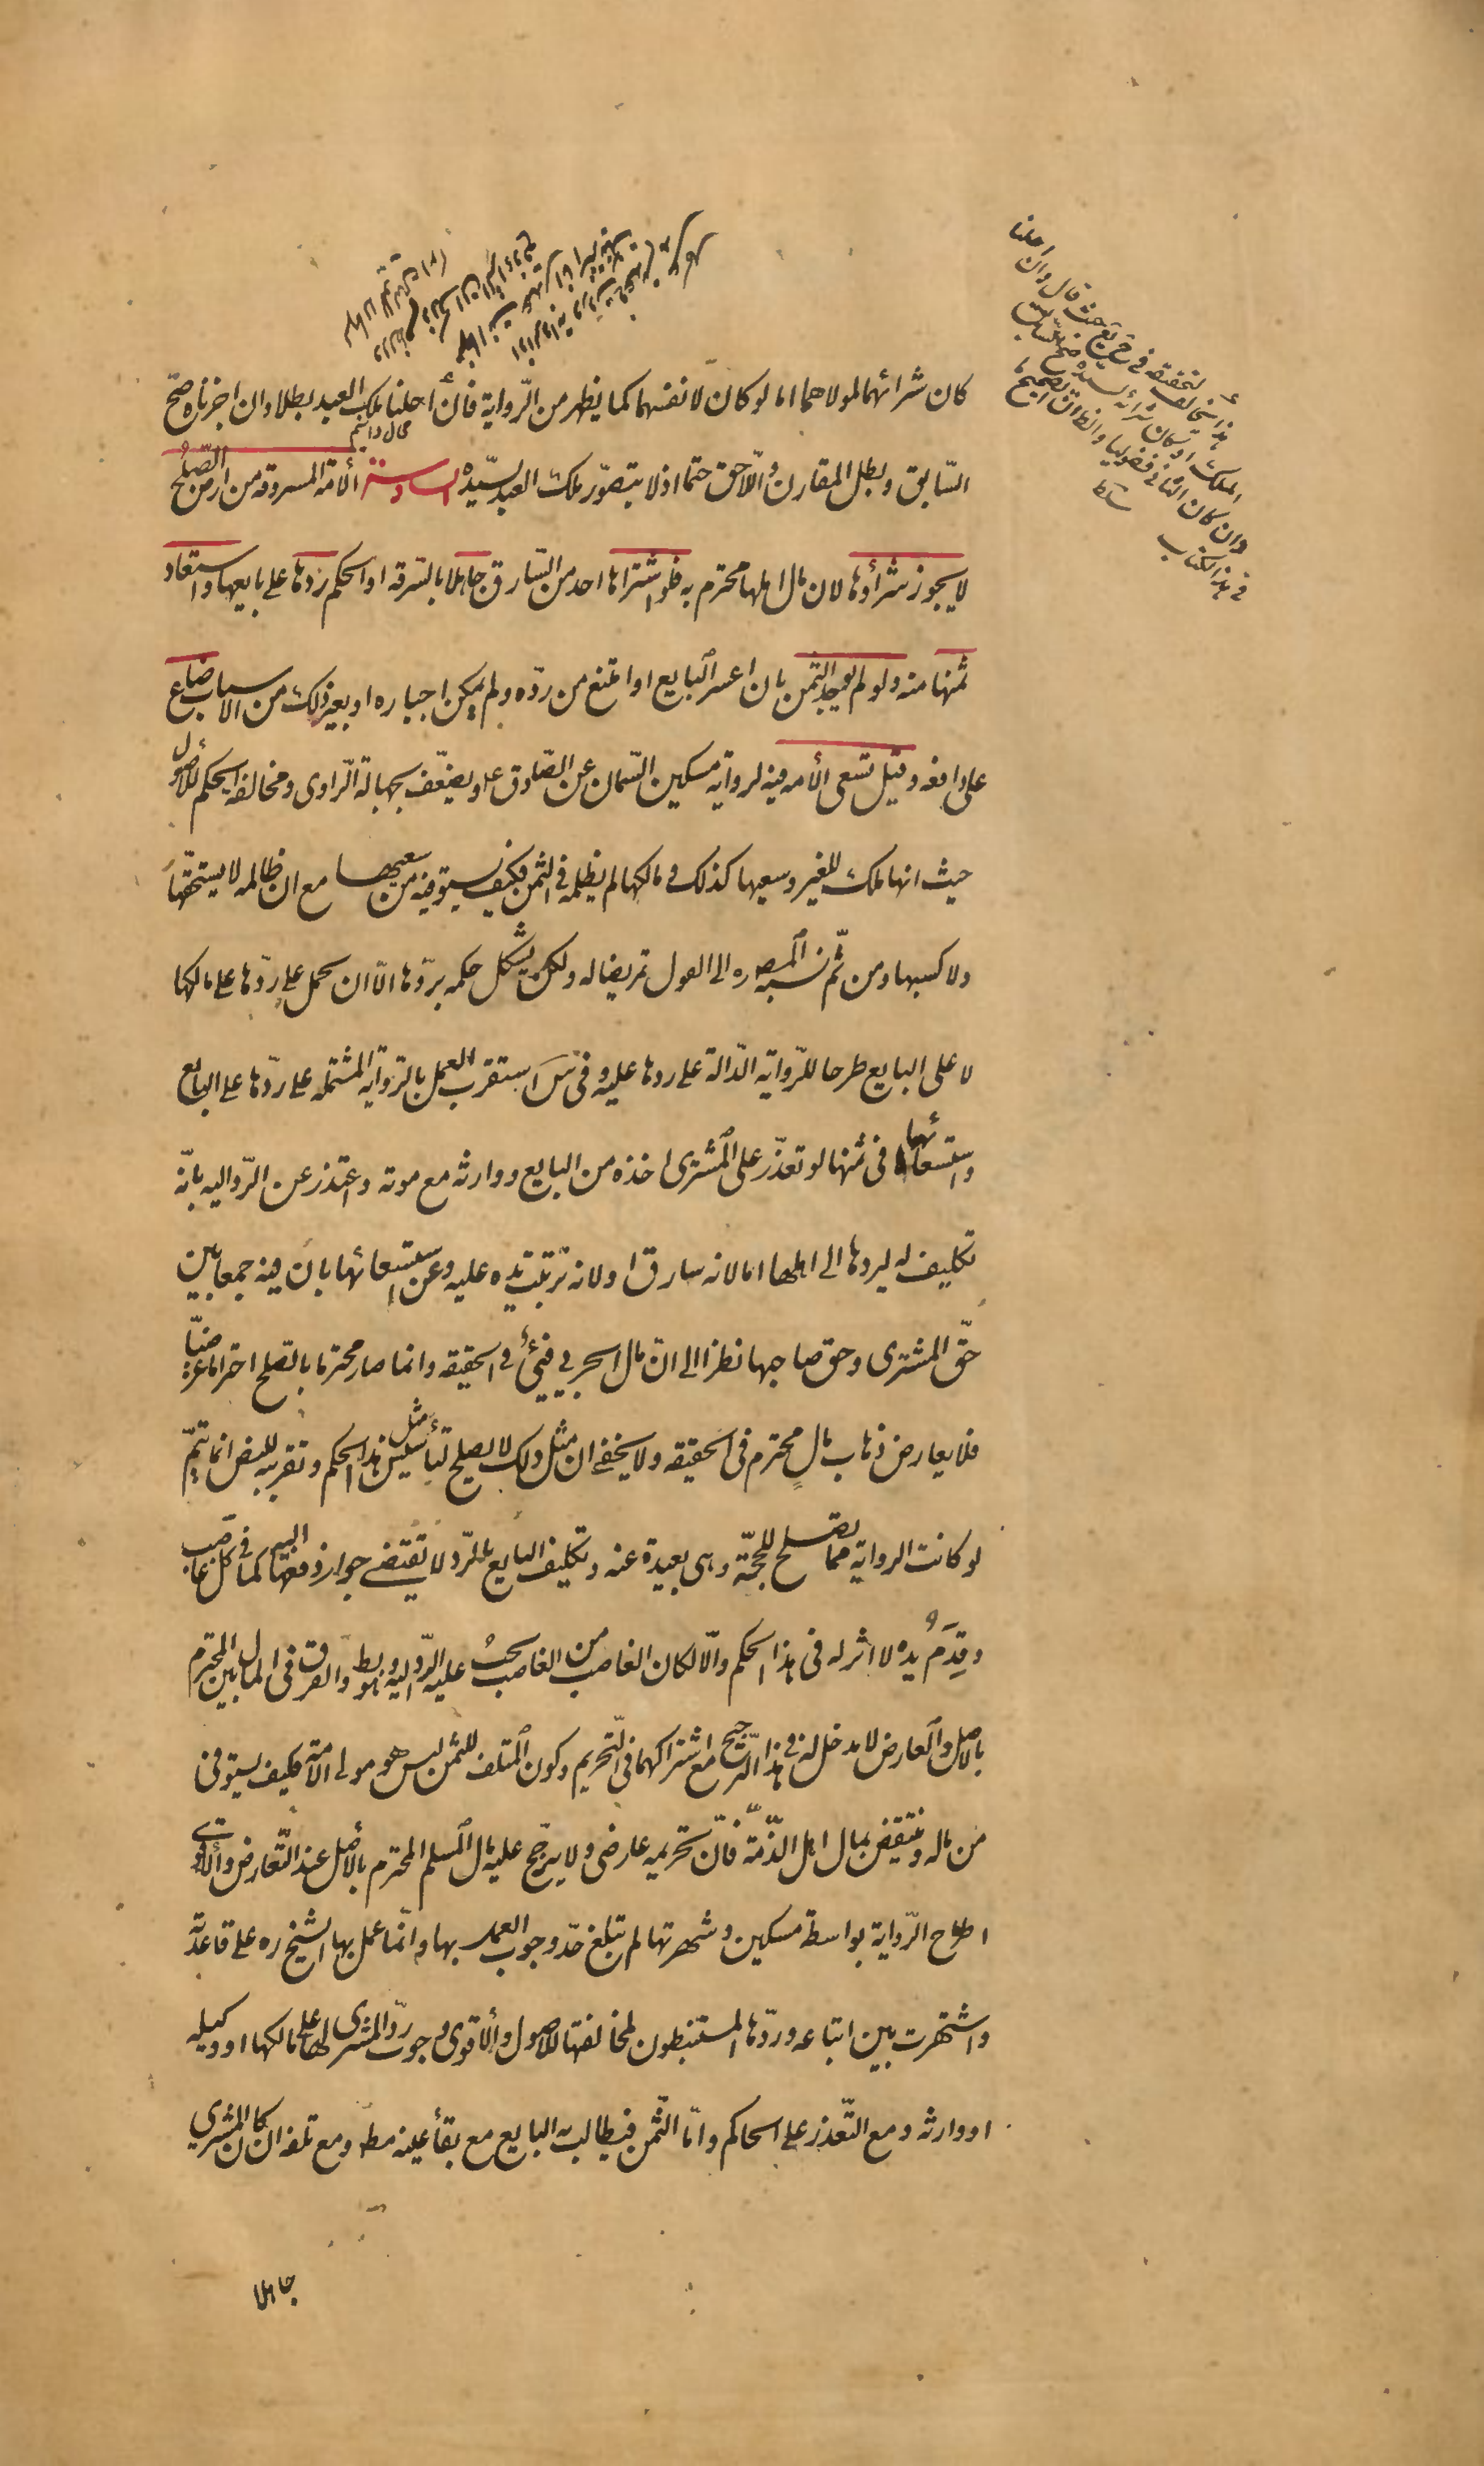 كان شرائهما لمولاهما اما لو كان لانفسهما كما يظهر من الرّواية فان أحلنا ملك العبد بطلا وان اجزناه صحّ
السّابق وبطل المقارن واللّاحق حتما اذ لا يتصوّر ملك العبد لسيّده السادسة الأمة المسروقة من ارض الصّلح
لا يجوز شراؤها لان مال اهلها محترم به فلو اشتراها احد من السّارق جاهلا بالسّرقه او الحكم ردّها على بايعها واستعاد
ثمنها منه ولو لم يوجد الثّمن بان اعسر البايع او امتنع من ردّه ولم يمكن اجباره او بغير ذلك من الاسباب ضاع
على دافعه وقيل تسعى الأمه فيه لرواية مسكين السّمان عن الصّادق ع ويضعّف بجهالة الرّاوى ومخالفة الحكم للاصول
حيث انها ملك للغير وسعيها كذلك و مالكها لم يظلمه فى الثمن فكيف يستوفيه من سعيها مع ان ظالمه لا يستحقّها
ولا كسبها ومن ثمّ نسبه المصـ ره الى القول تمريضا له ولكن يشكل حكمه بردّها الّا ان يحمل على ردّها على مالكها
لا على البايع طرحا للرّواية الدّالة على ردها عليه وفى س استقرب العمل بالرّواية المشتملة على ردّها على البايع
واستسعائها فى ثمنها لو تعذّر على المشترى اخذه من البايع ووارثه مع موته واعتذر عن الرّد اليه بانّه
تكليف له ليردها الى اهلها اما لانه سارق او لانه ترتبت يده عليه وعن استسعائها بان فيه جمعا بين
حقّ المشترى وحق صاحبها نظرا الى انّ مال الحربي فيئ فى الحقيقه وانما صار محترما بالصّلح احتراما عرضيّا
فلا يعارض ذهاب مال محترم فى الحقيقه ولا يخفى ان مثل ذلك لا يصلح لتأسيس مثل هذا الحكم وتقريبه للنص انما يتمّ
لو كانت الرواية مما تصلح للحجّة وهى بعيدة عنه وتكليف البايع بالرّد لا يقتضى جواز دفعها اليه كما فى كل غاصب
وقِدَمُ يده لا اثر له فى هذا الحكم والّا لكان الغاصب من الغاصب يجب عليه الرّد اليه وهو بط والفرق فى المال بين المحترم
بالاصل والعارض لا مدخل له فى هذا التّرجيح مع اشتراكهما فى التّحريم وكون المتلف للثمن ليس هو مولى الامة فكيف يستوفى
من ماله وينتقض بمال اهل الذّمة فانّ تحريمه عارضى ولا يرجّح عليه مال المسلم المحترم بالأصل عند التّعارض والأقوى
اطراح الرّواية بواسطة مسكين وشهرتها لم تبلغ حدّ وجوب العمل بها وانّما عمل بها الشيخ ره على قاعدته
واشتهرت بين اتباعه وردّها المستنبطون لمخالفتها للاصول والأقوى وجوب ردّ المشترى لها على مالكها او وكيله
او وارثه ومع التّعذر على الحاكم وامّا الثّمن فيطالب به البايع مع بقاء عينه مطـ ومع تلفه ان كان المشترى
جاهلا